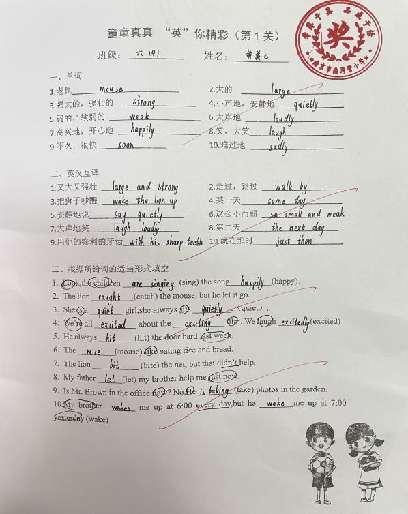 童萃真真 “英”你精彩（第1关）
班级： 六(4) 姓名：
一、单词
1.老鼠 mouse 2.大的 large
3.强大的；强壮的 strong 4.小声地；安静地 quietly
5.弱的；软弱的 weak 6.大声地 loudly
7.高兴地；开心地 happily 8.笑，大笑 laugh
9.不久，很快 soon 10.难过地 sadly
二、英汉互译
1.又大又强壮 large and strong 2.走过，路过 walk by
3.把狮子吵醒 wake the lion up 4.某一天 some day
5.安静地说 say quietly 6.这么小而弱 so small and weak
7.大声地笑 laugh loudly 8.第二天 the next day
9.用他的锋利的牙齿 with his sharp teeth 10.就在那时 just then
三、根据所给词的适当形式填空
1. Look, the children are singing (sing) the song happily (happy).
2. The lion caught (catch) the mouse, but he let it go.
3. She is a quiet girl, she always quietly (quiet).
4. We're all excited about the exciting . We laugh excitedly (excited)
5. He always hit (hit) the door hard last week.
6. The mice (mouse) like eating rice and bread.
7. The lion bit (bite) the net, but that didn't help.
8. My father let (let) my brother help me just now.
9. Is Mr. Brown in the office now? No. He is taking (take) photos in the garden.
10. My brother wakes me up at 6:00 every day, but he woke me up at 7:00
(wake)